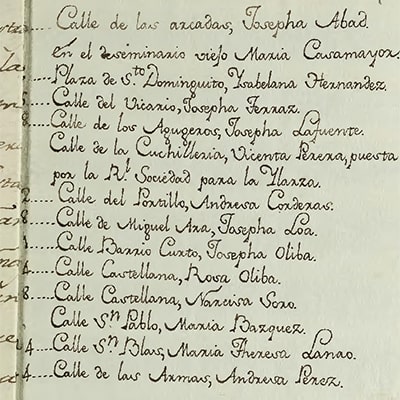 Calle de las arcadas, Josepha Abad.
en el deseminario viejo Maria Casamayor.
Plaza de S.to Dominguito, Ysabelana Hernandez.
Calle del Vicario, Josepha Ferraz.
8....Calle de los Agugeros, Josepha Lafuente.
Calle de la Cuchilleria, Vicenta Perera, puesta
por la R.l Sociedad para la Ylarza.
2....Calle del Portillo, Andresa Corderas.
8....Calle de Miguel Ara, Josepha Loa.
1....Calle Barrio Curto, Josepha Oliba.
4....Calle Castellana, Rosa Oliba.
8....Calle Castellana, Narcisa Soro.
Calle S.n Pablo, Maria Bazquez.
4....Calle S.n Blas, Maria Theresa Lanao.
4....Calle de las Armas, Andresa Perez.